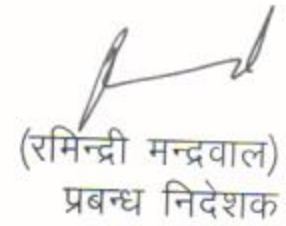 (रमिन्द्री मन्द्रवाल)
प्रबन्ध निदेशक